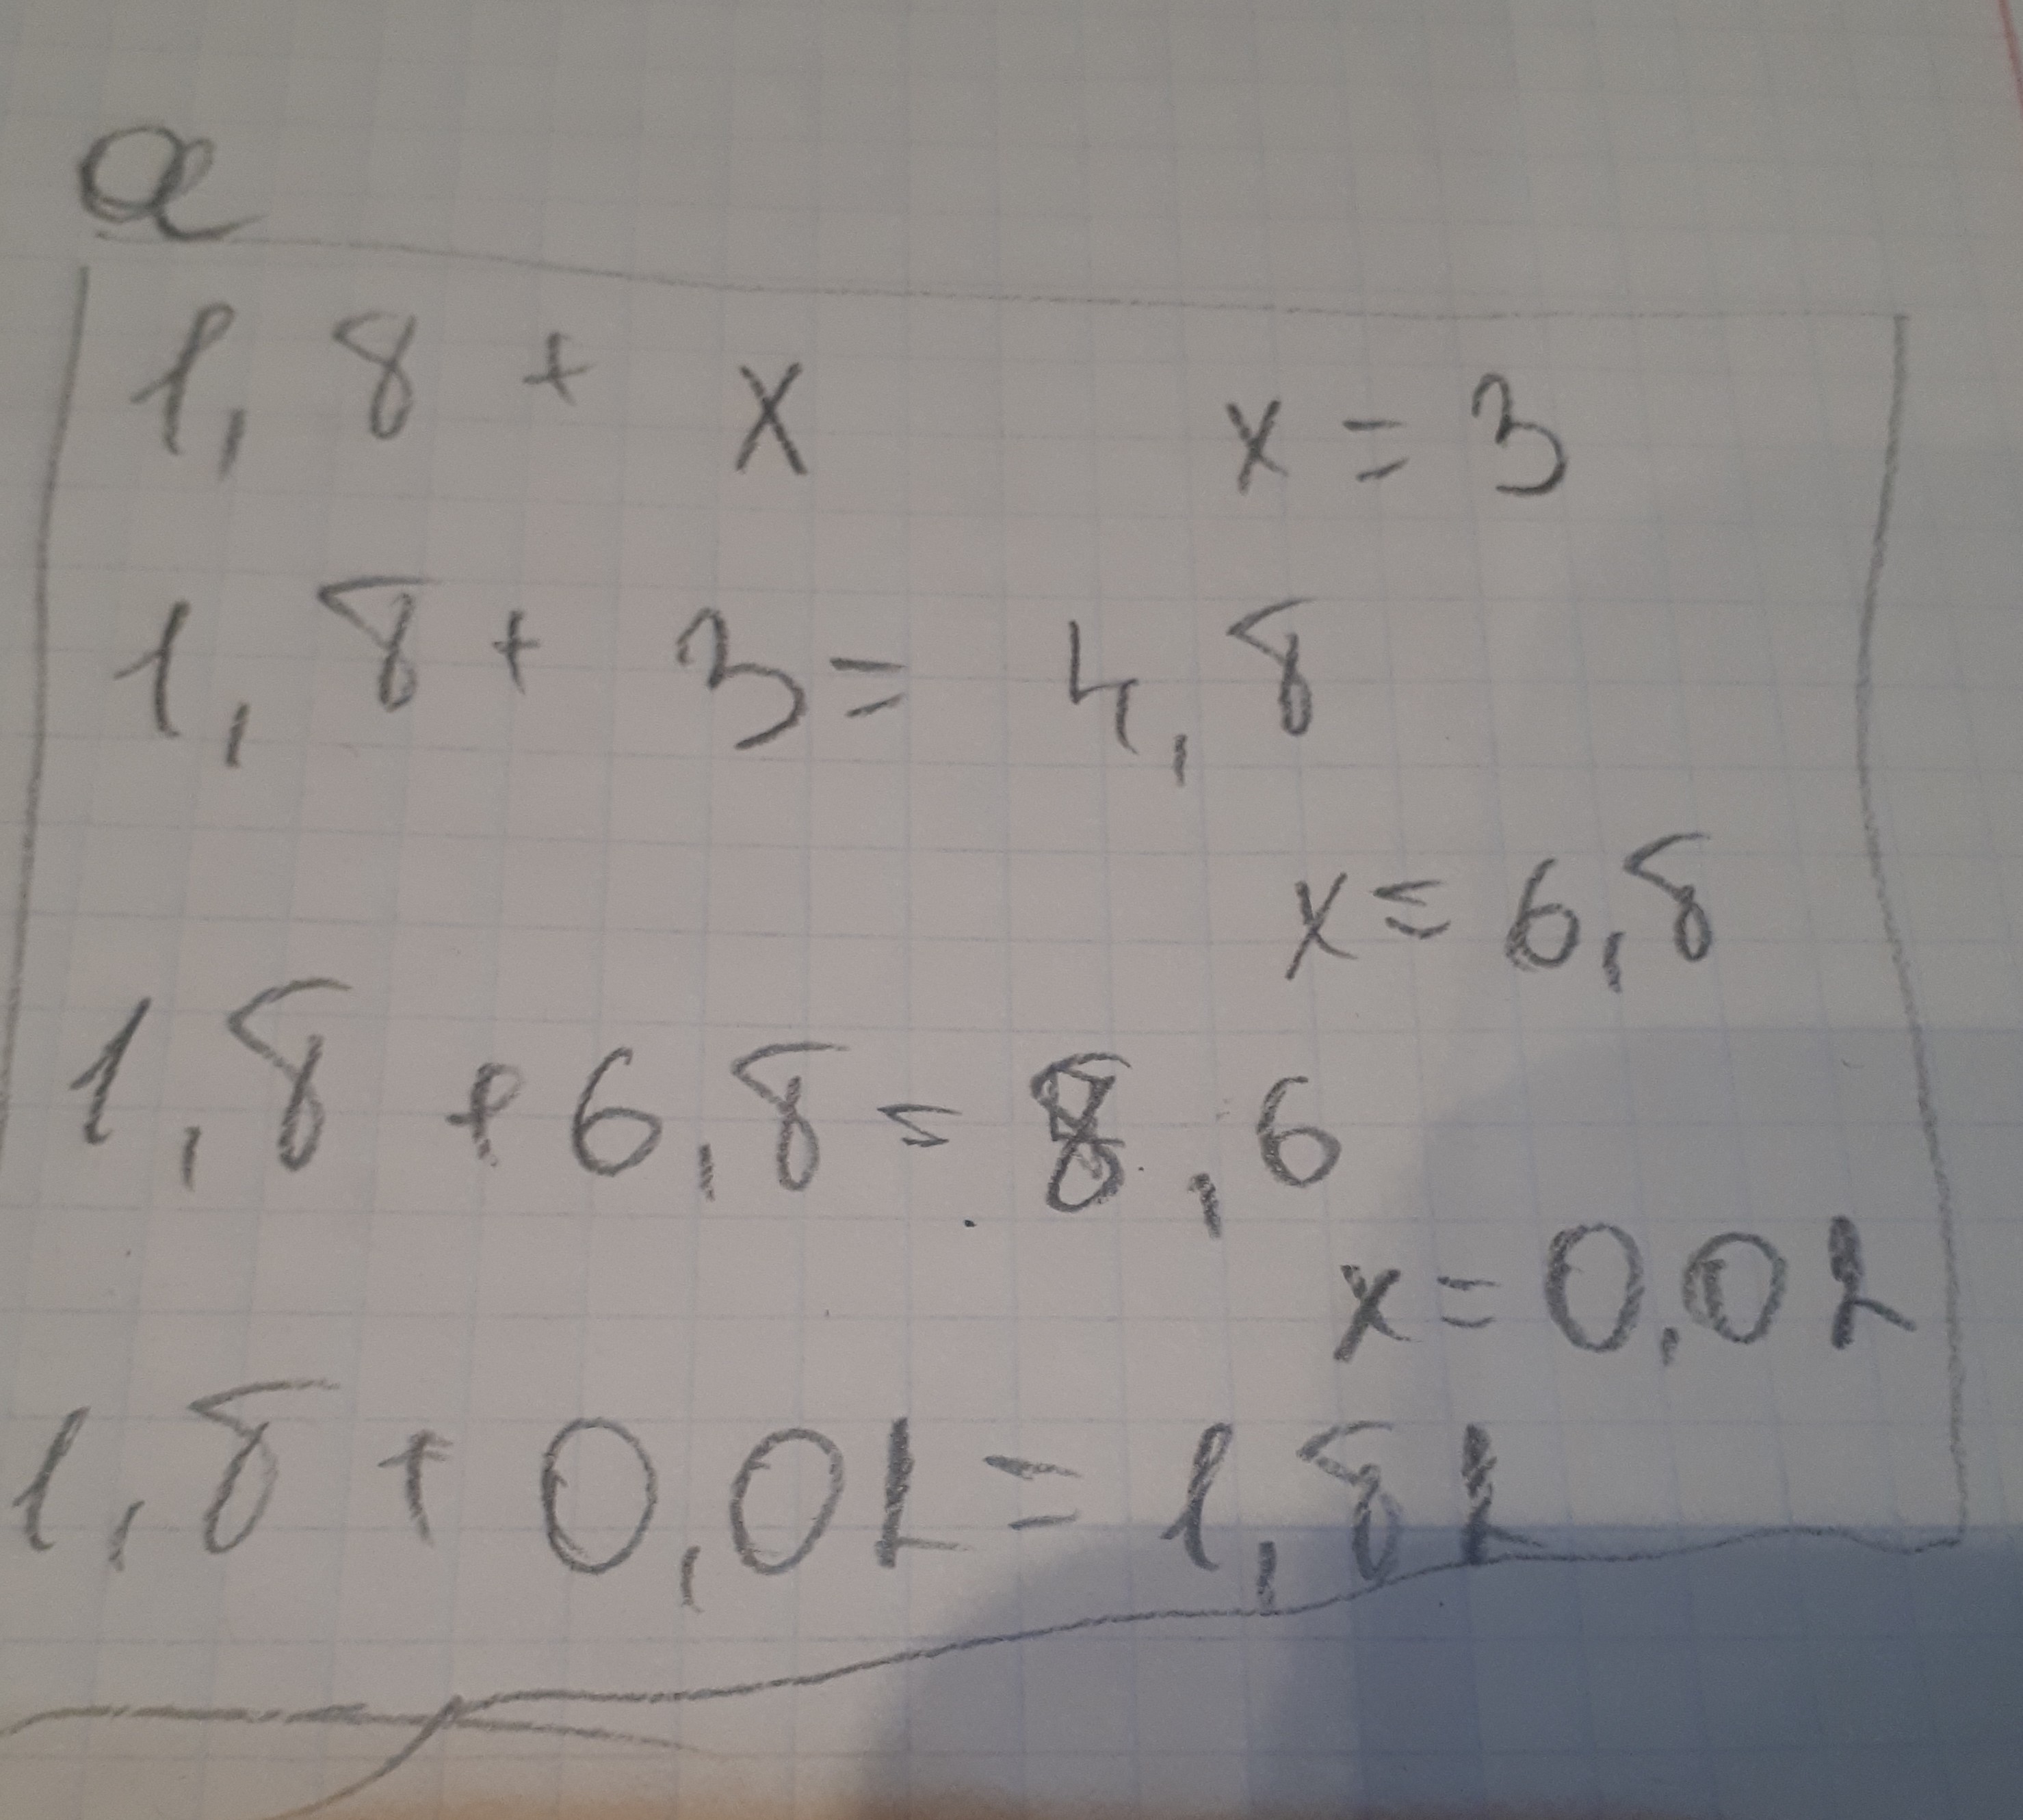 a
1,8 + x x = 3
1,8 + 3 = 4,8
x = 6,8
1,8 + 6,8 = 8,6
x = 0,01
1,8 + 0,01 = 1,81